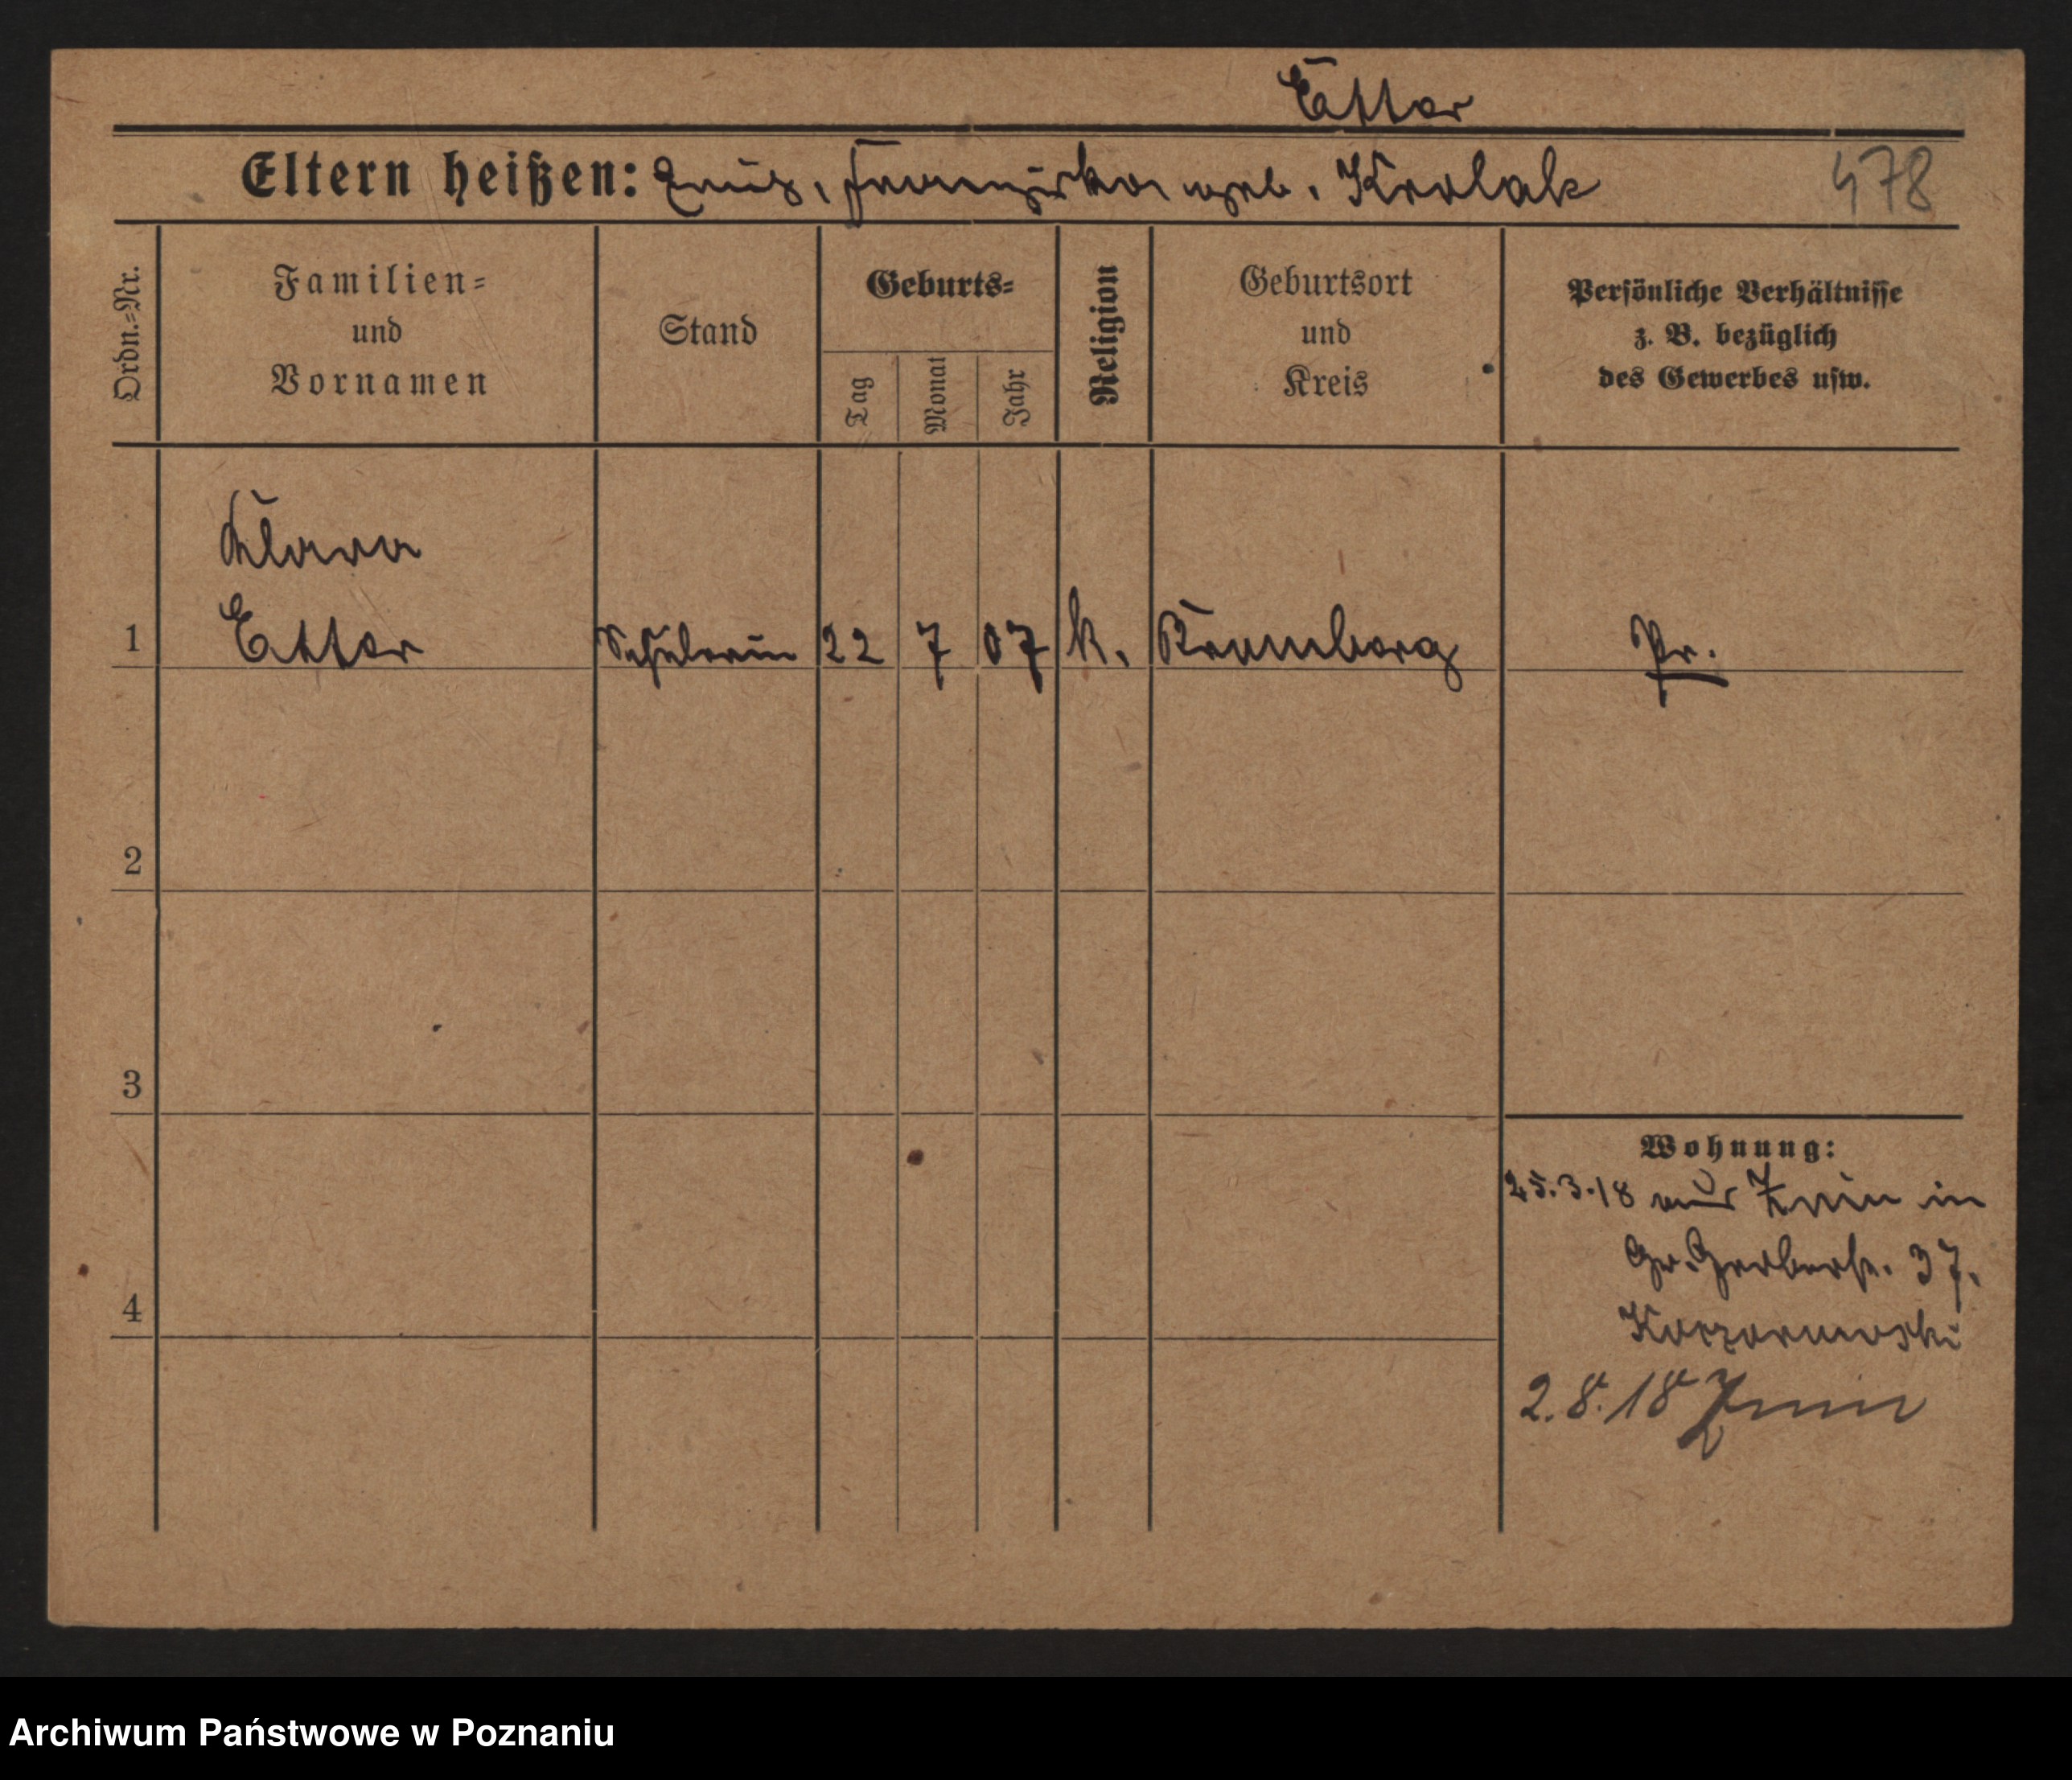 Etter
Eltern heißen: Franziska geb. Krolak 478
Ordn.-Nr.
Familien-
und
Vornamen
Stand
Geburts-
Tag
Monat
Jahr
Religion
Geburtsort
und
Kreis
Persönliche Verhältnisse
z. B. bezüglich
des Gewerbes usw.
Klara
1 Etter Schülerin 22 7 07 k. Bromberg Pr.
2
3
4
Wohnung:
25.3.18 aus Znin in
Gr. Gerberstr. 37.
2.8.18 Znin
Archiwum Państwowe w Poznaniu